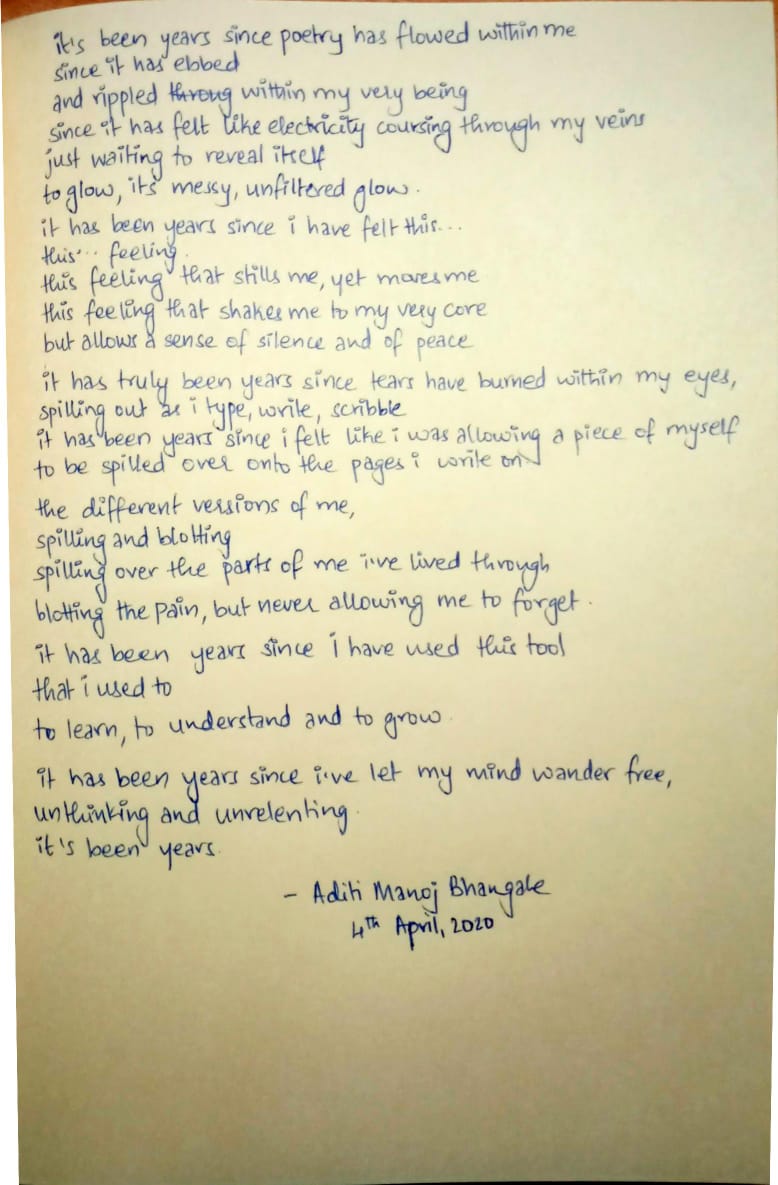 it's been years since poetry has flowed within me
since it has ebbed
and rippled throug within my very being
since it has felt like electricity coursing through my veins
just waiting to reveal itself
to glow, its messy, unfiltered glow.
it has been years since i have felt this...
this... feeling.
this feeling that stills me, yet moves me
this feeling that shakes me to my very core
but allows a sense of silence and of peace
it has truly been years since tears have burned within my eyes,
spilling out as i type, write, scribble
it has been years since i felt like i was allowing a piece of myself
to be spilled over onto the pages i write on
the different versions of me,
spilling and blotting
spilling over the parts of me i've lived through
blotting the pain, but never allowing me to forget.
it has been years since i have used this tool
that i used to
to learn, to understand and to grow.
it has been years since i've let my mind wander free,
unthinking and unrelenting.
it's been years.
- Aditi Manoj Bhangale
4th April, 2020